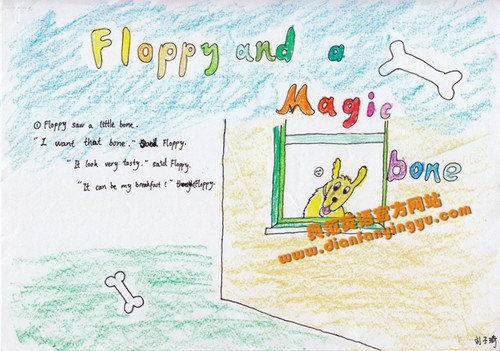 Floppy and a
Magic
bone
① Floppy saw a little bone.
"I want that bone." Said Floppy.
"It look very tasty." said Floppy.
"It can be my breakfast!" Floppy.
典范英语官方网站
www.dianfanyingyu.com